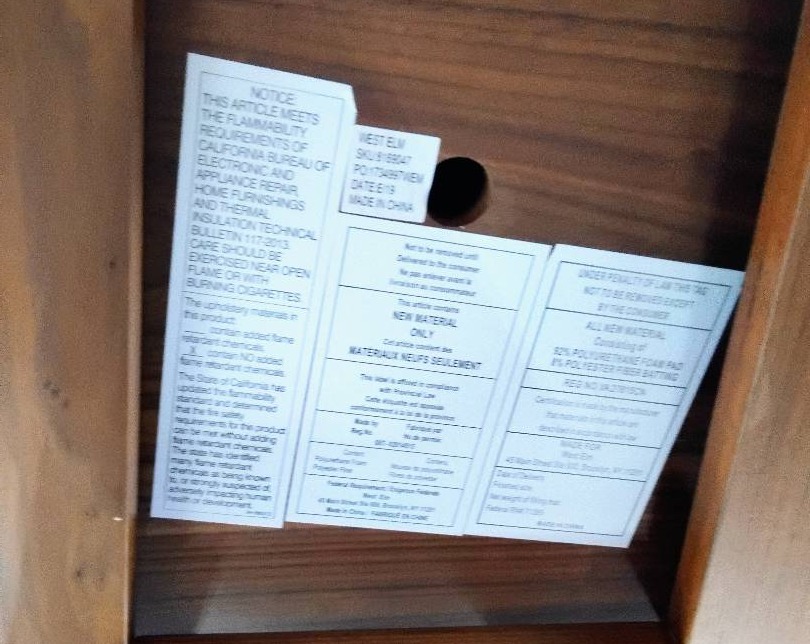 NOTICE:
THIS ARTICLE MEETS
THE FLAMMABILITY
REQUIREMENTS OF
CALIFORNIA BUREAU OF
ELECTRONIC AND
APPLIANCE REPAIR,
HOME FURNISHINGS
AND THERMAL
INSULATION TECHNICAL
BULLETIN 117-2013.
CARE SHOULD BE
EXERCISED NEAR OPEN
FLAME OR WITH
BURNING CIGARETTES.
The upholstery materials in
this product:
contain added flame
retardant chemicals.
X contain NO added
flame retardant chemicals.
The State of California has
updated the flammability
standard and determined
that the fire safety
requirements for this product
can be met without adding
flame retardant chemicals.
The state has identified
many flame retardant
chemicals as being known
to, or strongly suspected of,
adversely impacting human
health or development.
WEST ELM
DATE:E/19
MADE IN CHINA
Not to be removed until
Delivered to the consumer
Ne pas enlever avant la
livraison au consommateur
This article contains
NEW MATERIAL
ONLY
Cet article contient des
MATERIAUX NEUFS SEULEMENT
This label is affixed in compliance
with Provincial Law
Cette étiquette est apposée
conformément à la loi de la province
Made by Fabriqué par
Reg No. No de permis
Content: Contenu:
Polyurethane Foam
Polyester Fiber
Federal Requirement / Exigence Fédérale
West Elm
Made in China / FABRIQUÉ EN CHINE
UNDER PENALTY OF LAW THIS TAG
NOT TO BE REMOVED EXCEPT
BY THE CONSUMER
ALL NEW MATERIAL
Consisting of
92% POLYURETHANE FOAM PAD
8% POLYESTER FIBER BATTING
REG. NO.
Certification is made by the manufacturer
that materials in this article are
described in accordance with law.
MADE FOR
West Elm
Date of Delivery
MADE IN CHINA